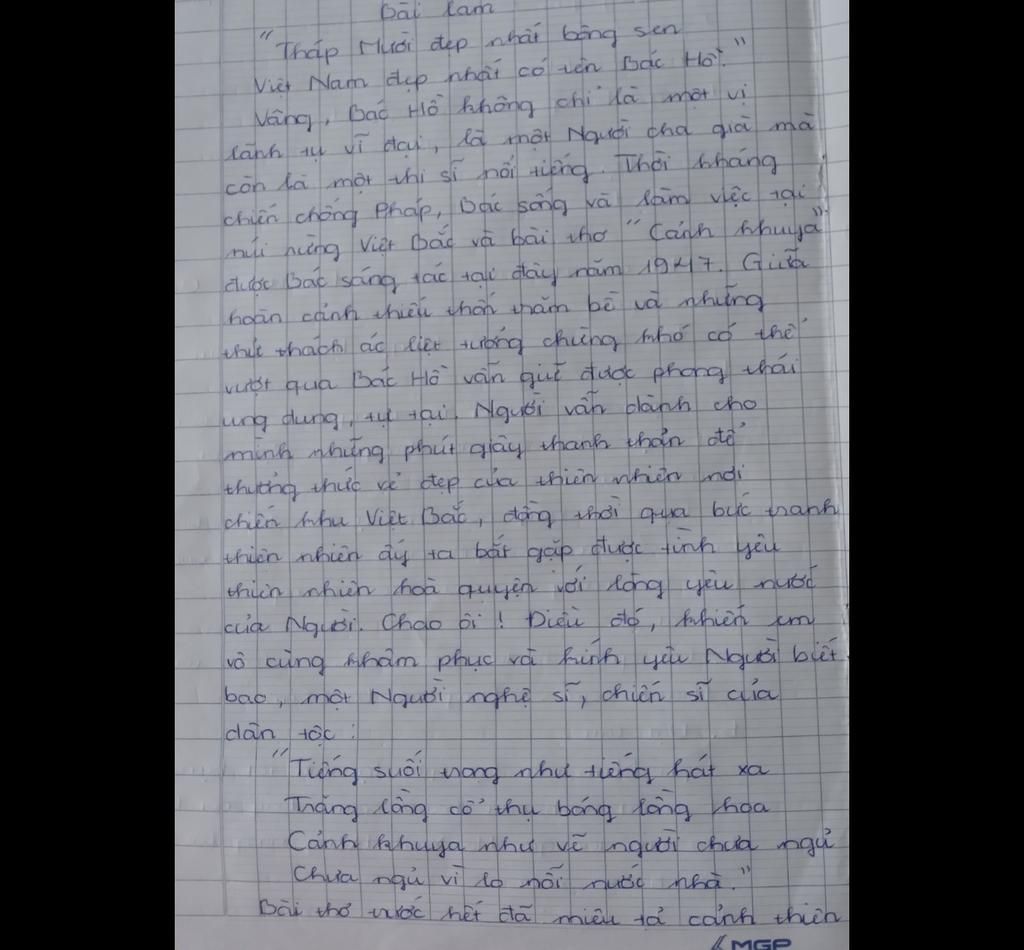 Bài làm
"Tháp Mười đẹp nhất bông sen
Việt Nam đẹp nhất có tên Bác Hồ."
Vâng, Bác Hồ không chỉ là một vị
lãnh tụ vĩ đại, là một Người cha già mà
còn là một thi sĩ nổi tiếng. Thời kháng
chiến chống Pháp, Bác sống và làm việc tại
núi rừng Việt Bắc và bài thơ "Cảnh khuya"
được Bác sáng tác tại đây năm 1947. Giữa
hoàn cảnh thiếu thốn trăm bề và những
thử thách ác liệt tưởng chừng khó có thể
vượt qua Bác Hồ vẫn giữ được phong thái
ung dung, tự tại. Người vẫn dành cho
mình những phút giây thanh thản để
thưởng thức vẻ đẹp của thiên nhiên nơi
chiến khu Việt Bắc, đồng thời qua bức tranh
thiên nhiên ấy ta bắt gặp được tình yêu
thiên nhiên hoà quyện với lòng yêu nước
của Người. Chao ôi! Điều đó, khiến em
vô cùng khâm phục và kính yêu Người biết
bao, một Người nghệ sĩ, chiến sĩ của
dân tộc:
"Tiếng suối trong như tiếng hát xa
Trăng lồng cổ thụ bóng lồng hoa
Cảnh khuya như vẽ người chưa ngủ
Chưa ngủ vì lo nỗi nước nhà."
Bài thơ trước hết đã miêu tả cảnh thiên
MGP